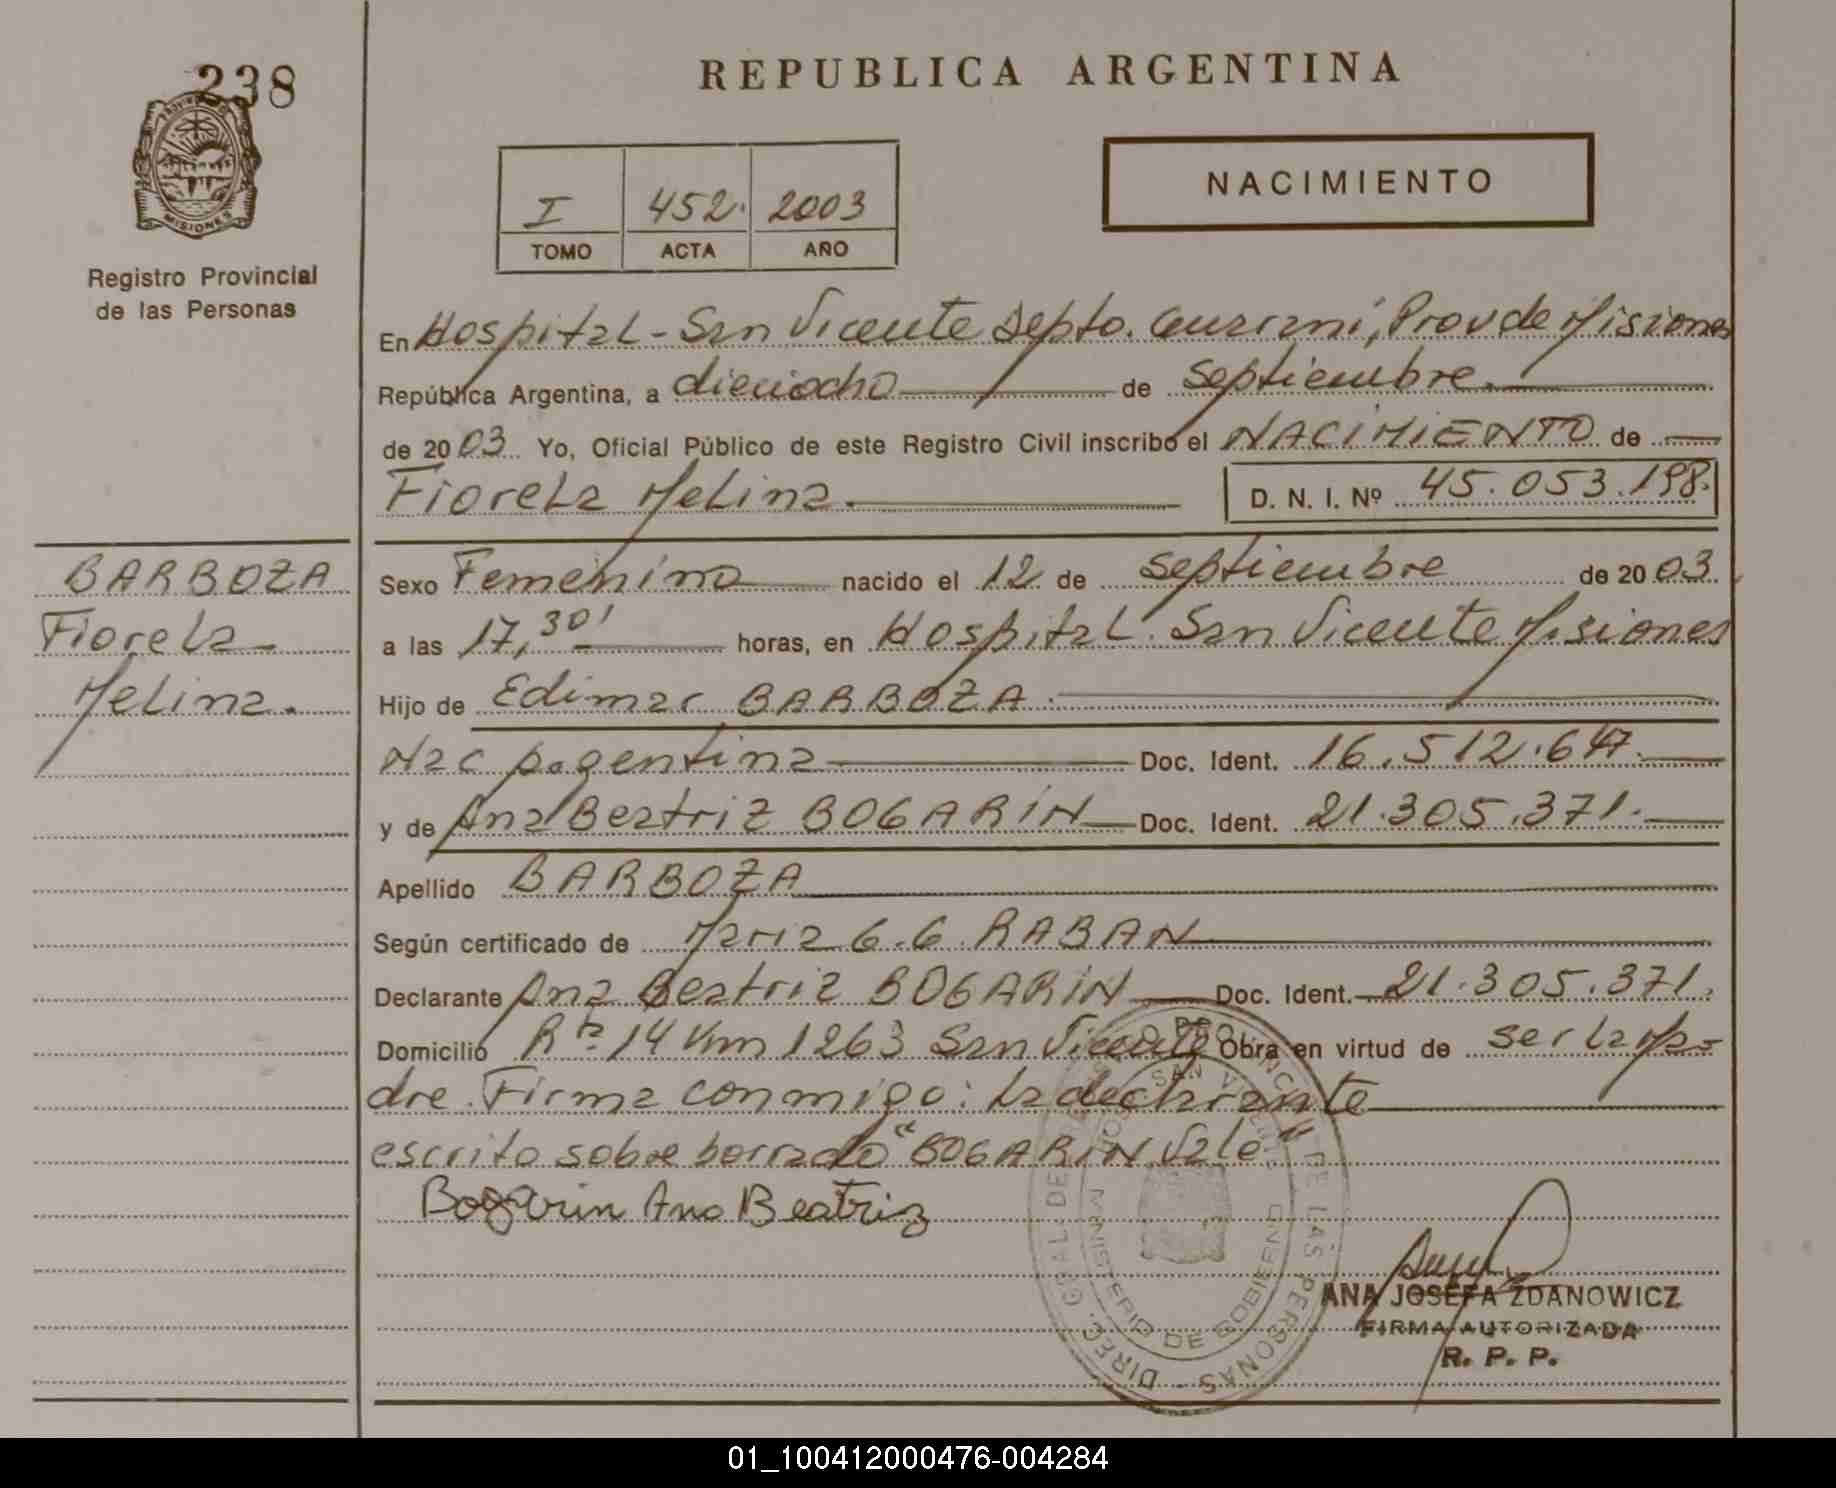 238
MISIONES
Registro Provincial
de las Personas
REPUBLICA ARGENTINA
I 452. 2003
TOMO ACTA AÑO
NACIMIENTO
En Hospital - San Vicente Depto. Guarani, Prov de Misiones
República Argentina, a dieciocho de Septiembre.
de 2003. Yo, Oficial Público de este Registro Civil inscribo el NACIMIENTO de
Fiorela Melina. D. N. I. Nº 45.053.198.
BARBOZA
Fiorela
Melina.
Sexo Femenino nacido el 12 de Septiembre de 2003.
a las 17,30' horas, en Hospital. San Vicente Misiones
Hijo de Edimar BARBOZA.
Nac Argentina Doc. Ident. 16.512.647.
y de Ana Beatriz BOGARIN Doc. Ident. 21.305.371.
Apellido BARBOZA
Según certificado de Maria G. G. RABAN
Declarante Ana Beatriz BOGARIN Doc. Ident. 21.305.371.
Domicilio Rta 14 Km 1263 San Vicente Obra en virtud de ser la ma-
dre. Firma conmigo: La declarante
escrito sobre borrado "BOGARIN Vale"
Bogarin Ana Beatriz
DIREC. GRAL. DE PROVINCIAL DE LAS PERSONAS
MINISTERIO DE GOBIERNO
SAN VICENTE
ANA JOSEFA ZDANOWICZ
FIRMA AUTORIZADA
R. P. P.
01_100412000476-004284